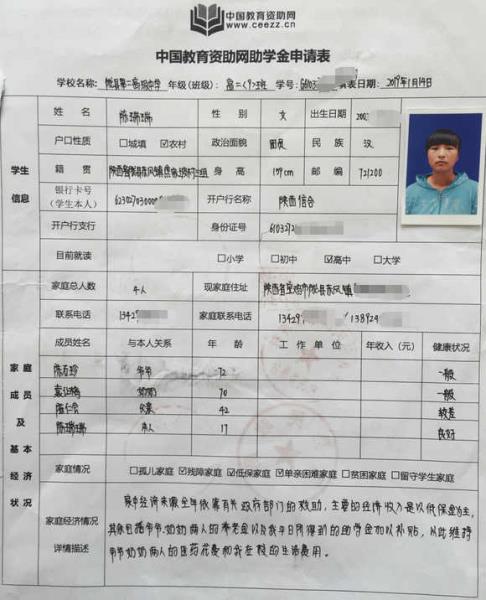 中国教育资助网
www.ceezz.cn
中国教育资助网助学金申请表
学校名称: 陇县第二高级中学 年级(班级): 高二(9)班 学号: 61032 填表日期: 2019年1月14日
姓名 陈瑞瑞 性别 女 出生日期 200
户口性质 □城镇 ☑农村 政治面貌 团员 民族 汉
学生信息
籍贯 身高 159cm 邮编 721200
银行卡号(学生本人) 6230270300000 开户行名称 陕西信合
开户行支行 身份证号 610327
目前就读 □小学 □初中 ☑高中 □大学
家庭总人数 4人 现家庭住址 陕西省宝鸡市陇县东风镇
联系电话 1342 家庭联系电话 13429 / 138924
成员姓名 与本人关系 年龄 工作单位 年收入(元) 健康状况
爷爷 72 一般
奶奶 70 一般
父亲 42 较差
陈瑞瑞 本人 17 良好
家庭成员及基本经济状况
家庭情况 □孤儿家庭 ☑残障家庭 ☑低保家庭 ☑单亲困难家庭 □贫困家庭 □留守学生家庭
家庭经济情况详情描述
家中经济来源全年依靠有关政府部门的救助,主要的经济收入是以低保金为主,
其余包括爷爷、奶奶两人的养老金以及我平日所得到的助学金加以补贴,以此维持
爷爷奶奶两人的医药花费和我在校的生活费用。